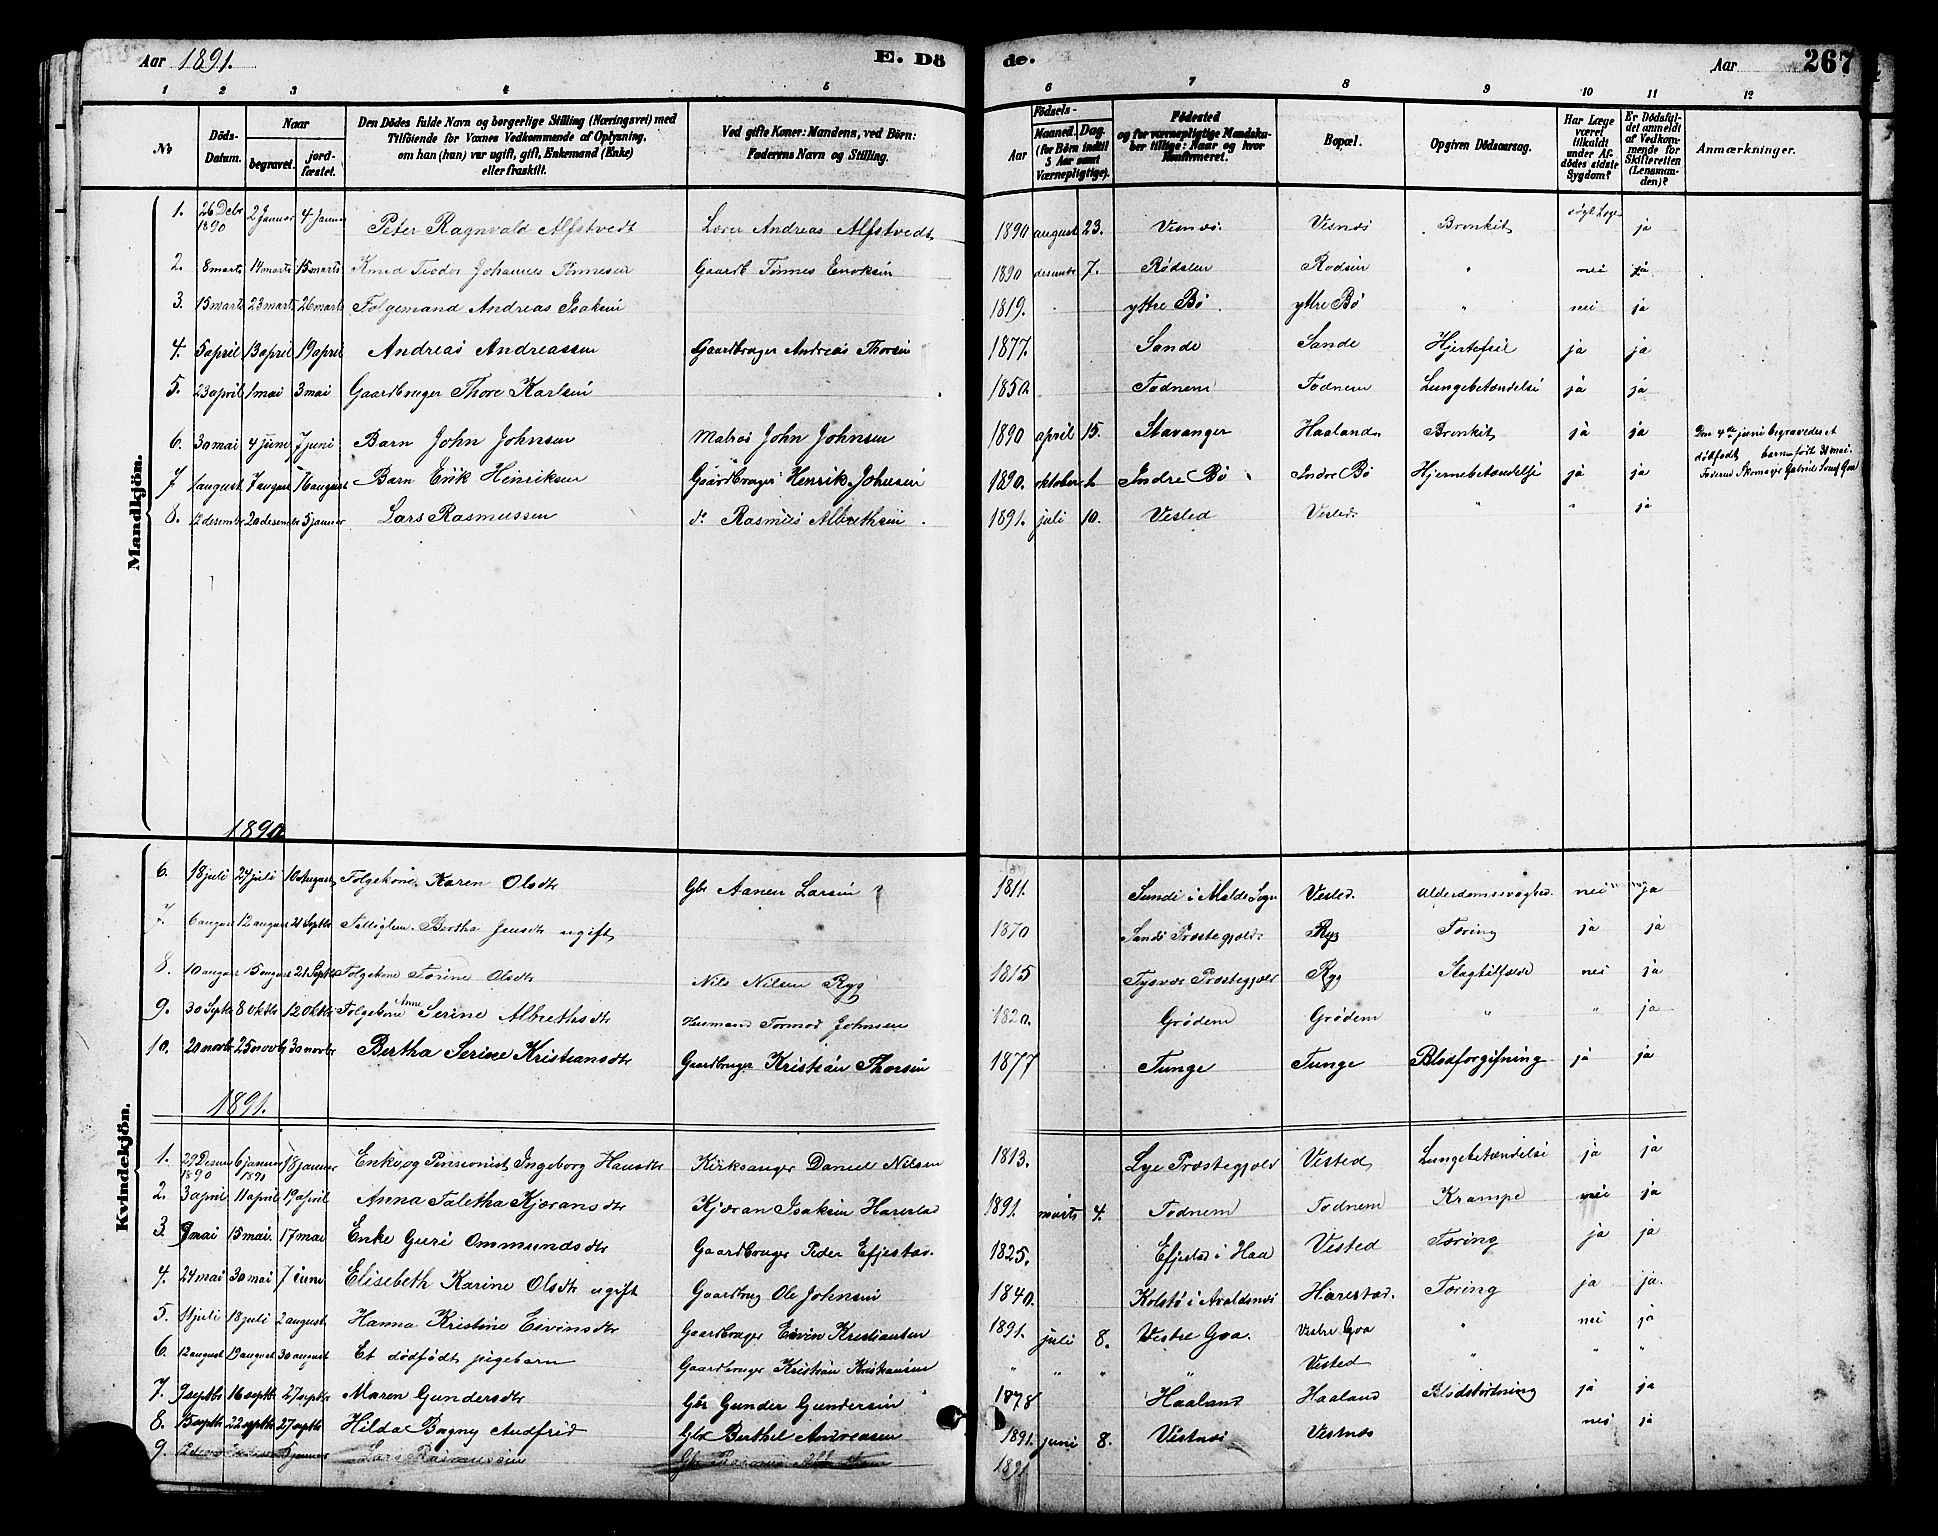 Aar 1891. E. Dö de. Aar 267
1 2 3 4 5 6 7 8 9 10 11 12
No Döds-Datum. Naar begravet. jord-fæstet. Den Dödes fulde Navn og borgerlige Stilling (Næringsvei) med Tilföiende for Voxnes Vedkommende af Oplysning, om han (hun) var ugift, gift, Enkemand (Enke) eller fraskilt. Ved gifte Koner: Mandens, ved Börn: Faderens Navn og Stilling. Födsels- Aar Maaned. Dag. (for Börn indtil 5 Aar samt Værnepligtige). Födested og for værnepligtige Mandskaber tillige: Naar og hvor Konfirmeret. Bopæl. Opgiven Dödsaarsag. Har Læge været tilkaldt under Afdödes sidste Sygdom? Er Dödsfaldet anmeldt af Vedkommende for Skifteretten (Lensmanden)? Anmærkninger.
Mandkjön.
1. 26 Debr 1890 2 Januar 4 Januar Peter Ragnvald Alfstvedt Lærer Andreas Alfstvedt 1890 august 23. Visnæs. Visnæs Bronkit ja
2. 8 marts 14 marts 15 marts Knud Teodor Johannes Tønnesen Gaardb Tønnes Eriksen 1890 desembr 7. Rødslen Rodsen " nei ja
3. 15 marts 23 marts 26 marts Folgemand Andreas Isaksen 1819. yttre Bö. yttre Bö " nei ja
4. 5 april 13 april 19 april Andreas Andreassen Gaardbruger Andreas Thorsen 1877. Sande Sande Hjertefeil ja ja
5. 23 april 1 mai 3 mai Gaardbruger Thore Karlsen 1850. Todnem Todnem Lungebetændelse ja ja
6. 30 mai 4 juni 7 juni Barn John Johnsen Matros John Johnsen 1890 april 15. Stavanger Haaland Bronkit ja ja Den 4de juni begravedes et dødfødt barn født 31 mai. Faderen Skomager Gabriel Goa
7 1 august 7 august 16 august Barn Erik Henriksen Gaardbruger Henrik Johnsen 1890. oktober 1. Indre Bö Indre Bö Hjernebetændelse ja ja
8. 12 desember 20 desember 5 januar Lars Rasmussen d. Rasmus Albrethsen 1891. juli 10. Vested Vested. " " ja
1890
Kvindekjön.
6. 18 juli 24 juli 10 August Folgekone Karen Olsdtr Gbr Aanen Larsen 1811. Sunde i Malde Sogn Vested. Alderdomssvaghed nei ja
7. 6 august 12 august 21 Septbr Fattiglem Bertha Jensdtr ugift 1870 Sands Præstegjeld. Ryg Tæring ja ja
8. 10 august 15 august 21 Septbr Folgekone Torine Olsdtr Nils Nilsen Ryg 1815 Tysvær Præstegjeld Ryg Slagtilfælde nei ja
9. 30 Septbr 8 Oktbr 12 Oktbr Folgekone Anne Serine Albrethsdtr Husmand Tormod Johnsen 1820. Grødem Grødem " " ja
10. 20 novbr 25 novbr 30 novbr Bertha Serine Kristiansdtr Gaardbruger Kristian Thorsen 1877 Tunge Tunge Blodforgifning ja ja
1891.
1. 29 Desem 1890 6 januar 1891 18 januar Enke og Pensionist Ingeborg Hansdtr Kirksanger Daniel Nilsen 1813. Lye Præstegjeld Vested Lungebetændelse ja ja
2. 3 april 11 april 19 april Anna Taletha Kjøransdtr Kjøran Isaksen Harestad 1891. marts 4. Todnem Todnem Krampe nei ja
3. 9 mai 15 mai. 17 mai Enke Guri Ommundsdtr Gaardbruger Peder Efjestad. 1825. Efjestad i Haa Vested Tæring ja ja
4. 24 mai 30 mai 7 juni Elisebeth Karine Olsdtr ugift Gaardbrug Ole Johnsen 1840. Kolstø i Avaldsnæs Harestad. Tæring ja ja.
5. 11 juli 18 juli 2 august Hanna Kristine Eivinsdtr Gaardbruger Eivin Kristiansen 1891. juli 8. Vestre Goa. Vestre Goa " nei ja
6. 12 august 19 august 30 august Et dødfødt pigebarn Gaardbruger Kristian Kristiansen " " " " Vested " " "
7. 9 septbr 16 septbr 27 septbr Maren Gundersdtr Gbr Gunder Gundersen 1878 Haaland Haaland Blodstørtning ja ja
8. 15 septbr 22 septbr 27 septbr Hilda Bagny Audfrid Gbr Berthel Andreasen 1891. juni 8. Vistnæs Vistnæs nei ja
9. 5 januar Lars Rasmussen Gbr 1891